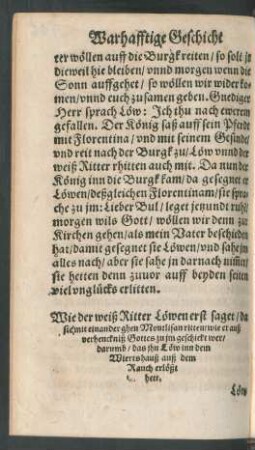 Warhafftige Geschicht
ter wöllen auff die Burgk reiten / so solt jr
dieweil hie bleiben / vnnd morgen wenn die
Sonn auffgehet / so wöllen wir wider ko-
men / vnnd euch zusamen geben. Gnediger
Herr sprach Löw: Ich thu nach ewerem
gefallen. Der König saß auff sein Pferdt
mit Florentina / vnd mit seinem Gesinde /
vnd reit nach der Burgk zu / Löw vnnd der
weiß Ritter rhitten auch mit. Da nun der
König inn die Burgk kam / da gesegnet er
Löwen / deßgleichen Florentinam / sie spra-
che zu jm: Lieber Bul / leget jeyundt ruh /
morgen wils Gott / wöllen wir denn zur
Kirchen gehen / als mein Vater beschieden
hat / damit gesegnet sie Löwen / vnd sahe jn
alles nach / aber sie sahe jn darnach nimer /
sie hetten denn zuuor auff beyden seiten
viel vnglücks erlitten.
Wie der weiß Ritter Löwen erst saget / da
sich mit einander ghen Montlisan ritten / wie er auß
verhencknüß Gottes zu jm geschickt wer /
darumb / das jhn Löw inn dem
Wiertshauß auß dem
Rauch erlößt
hett.
Löw